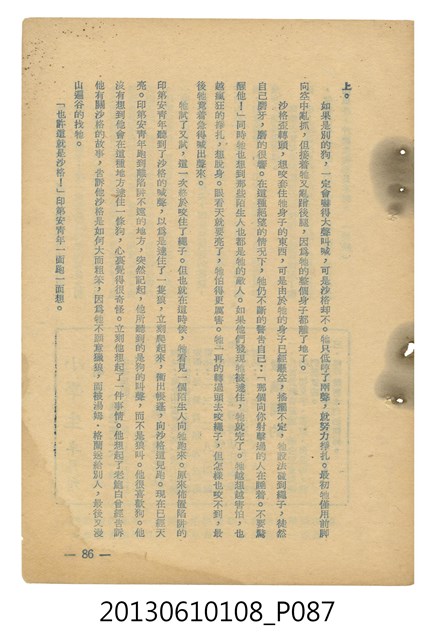 上。
如果是別的狗,一定會嚇得大聲叫喊,可是沙格卻不。牠只低哼了兩聲,就努力掙扎。最初牠僅用前脚
向空中亂抓,但接着牠又亂蹬後腿,因為牠的整個身子都離了地了。
沙格歪轉頭,想咬套住牠身子的東西,可是由於牠的身子已經懸空,搖擺不定,牠設法碰到繩子,徒然
自己磨牙,磨的很響。在這種絕望的情況下,牠仍不斷的警告自己:「那個向你射擊過的人在睡着。不要驚
醒他!」同時牠也想到那些陌生人也都是牠的敵人。如果他們發現牠被逮住,牠就完了。牠越想越害怕,也
越瘋狂的掙扎,想脫身。眼看天就要亮了,牠怕得更厲害。牠一再的轉過頭去咬繩子,但怎樣也咬不到,最
後牠竟着急得喊出聲來。
牠試了又試,這一次終於咬住了繩子。但也就在這時候,牠看見一個陌生人向牠跑來。原來佈置陷阱的
印第安青年聽到了沙格的喊聲,以為是逮住了一隻狼,立刻爬起來,衝出帳篷,向沙格這兒跑。現在已經天
亮。印第安青年跑到離陷阱不遠的地方,突然記起,他所聽到的是狗的叫聲,而不是狼叫。他很喜歡狗。他
沒有想到他會在這種地方逮住一條狗,心裏覺得很奇怪。立刻他想起了一件事情。他想起了老鮑白曾經告訴
他有關沙格的故事,告訴他沙格是如何大而粗笨,因為牠不願意獵狼,而被湯姆·格蘭送給別人,最後又漫
山遍谷的找牠。
「也許這就是沙格!」印第安青年一面跑一面想。
— 86 —
20130610108_P087